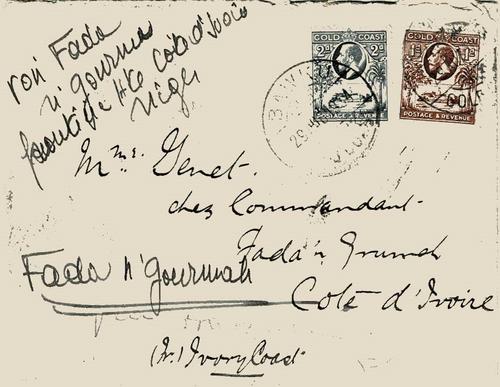 voir Fada
n'gourma
frontière Hte Côte d'Ivoire
Niger
GOLD COAST
2d 2d
POSTAGE & REVENUE
GOLD COAST
1d 1d
POSTAGE & REVENUE
BAWKU
Mme. Genet.
chez Commandant
Fada 'n Grumah
Fada n'gourmah
Coté d'Ivoire
(Fr.) Ivory Coast